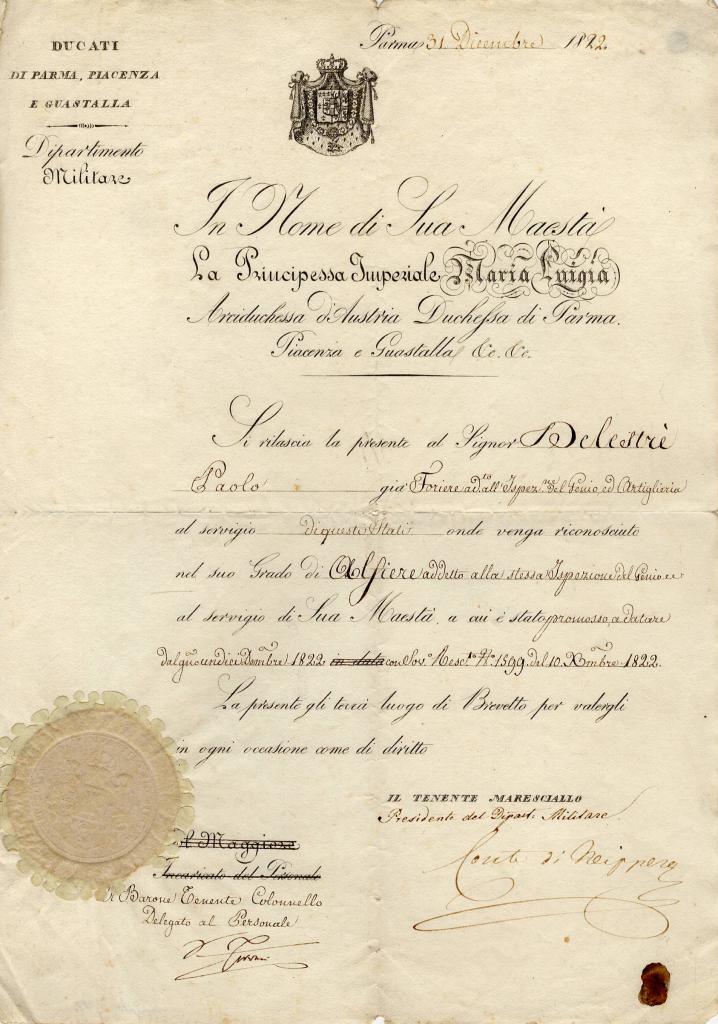 DUCATI
DI PARMA, PIACENZA
E GUASTALLA
Dipartimento
Militare
Parma 31 Dicembre 1822.
In Nome di Sua Maestà
La Principessa Imperiale Maria Luigia
Arciduchessa d'Austria Duchessa di Parma.
Piacenza e Guastalla &c. &c.
Si rilascia la presente al Signor Delestrè
Paolo già Foriere ad.to all'Ispez.ne del Genio, ed Artiglieria
al servigio di questi Stati onde venga riconosciuto
nel suo Grado di Alfiere addetto alla stessa Ispezione del Genio
al servigio di Sua Maestà, a cui è stato promosso, a datare
dal undici 1822 in data con Sov.o Resc.to N.o 1399. del 10. Xmbre 1822.
La presente gli terrà luogo di Brevetto per valergli
in ogni occasione come di diritto
IL TENENTE MARESCIALLO
Presidente del Dipart. Militare
Conte di Neipperg
Il Maggiore
Incaricato del Personale
Il Barone Tenente Colonnello
Delegato al Personale